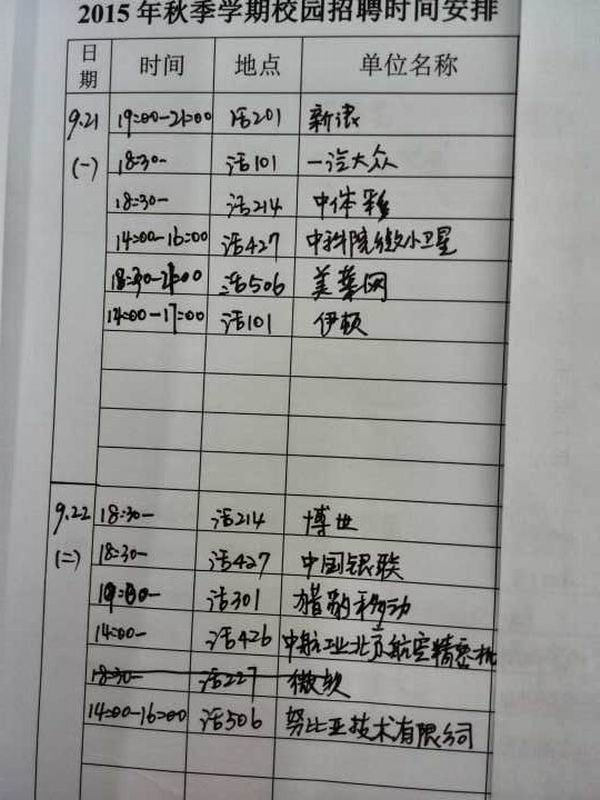 2015年秋季学期校园招聘时间安排
日期 时间 地点 单位名称
9.21 19:00-21:00 活201 新浪
(一) 18:30- 活101 一汽大众
18:30- 活214 中体彩
14:00-16:00 活427 中科院微小卫星
18:30-21:00 活506 美菜网
14:00-17:00 活101 伊顿
9.22 18:30- 活214 博世
(二) 18:30- 活427 中国银联
19:00- 活301 猎豹移动
14:00- 活426 中航工业北京航空精密机
18:30- 活227 微软
14:00-16:00 活506 努比亚技术有限公司